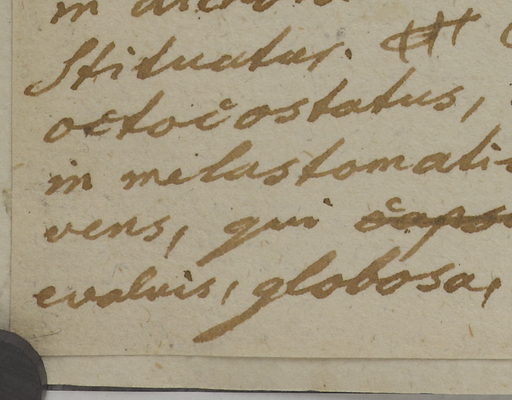 in
stituatur.
octocostatus,
in melastomatis
vens, qui capsu
evalvis, globosa,